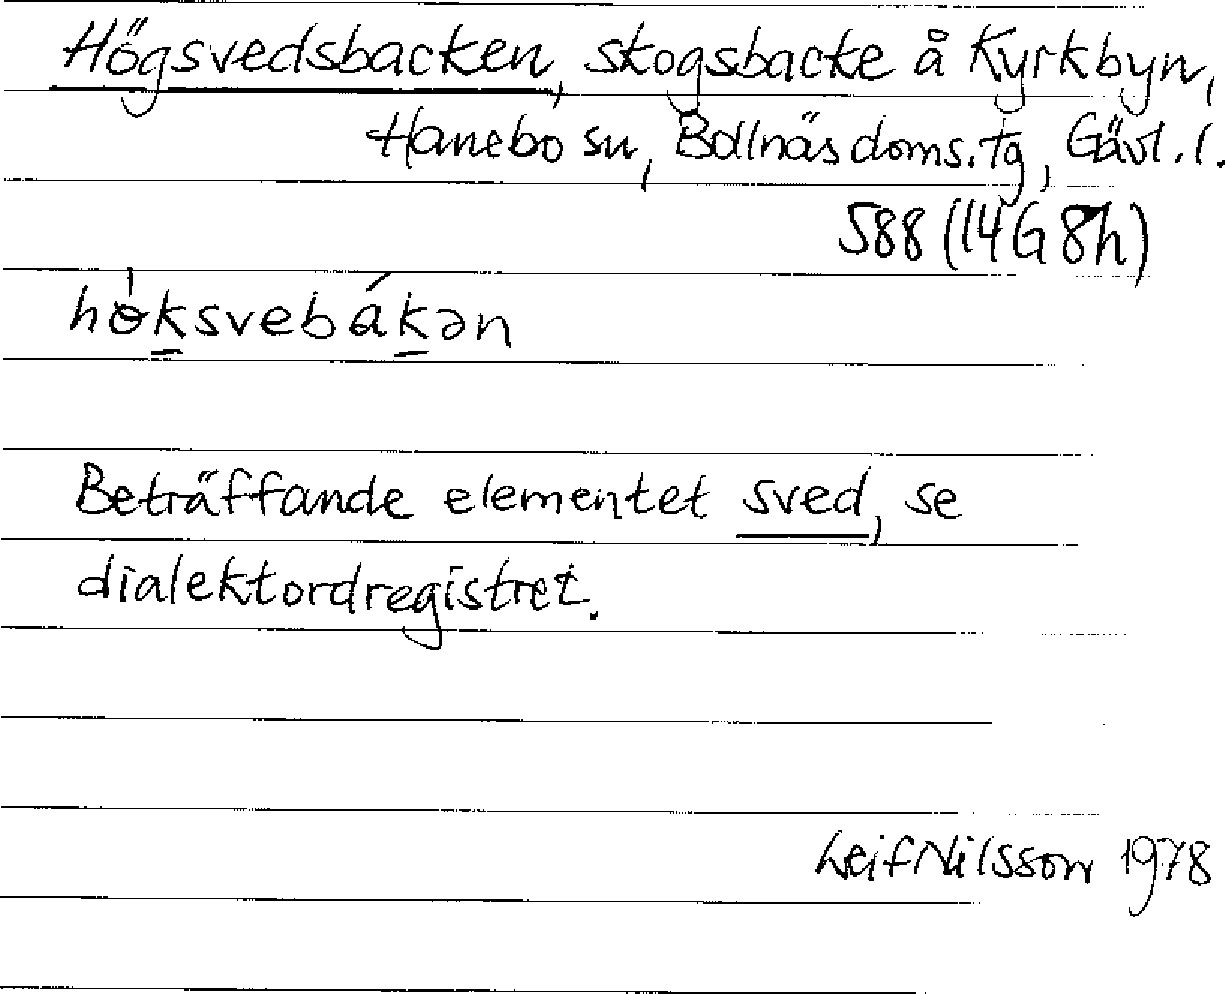 Högsvedsbacken, skogsbacke å Kyrkbyn,
Hanebo sn, Bollnäs doms.tg, Gävl.l.
588 (14G 8h)
hɵ́ksvebákən
Beträffande elementet sved, se
dialektordregistret.
Leif Nilsson 1978